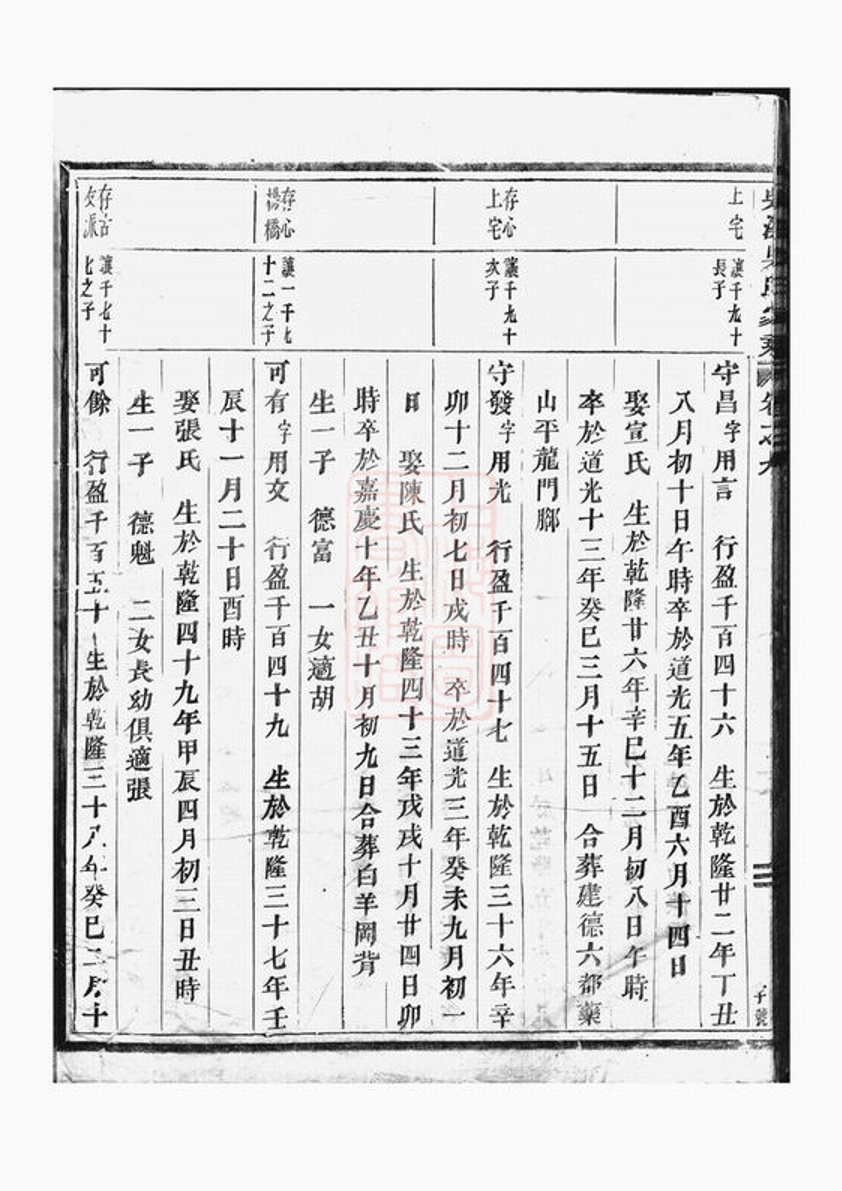 吳氏家乘 卷之九
上宅
讓千九十
長子
守昌字用言 行盈千百四十六 生於乾隆廿二年丁丑
八月初十日午時卒於道光五年乙酉六月十四日
娶宣氏 生於乾隆廿六年辛巳十二月初八日午時
卒於道光十三年癸巳三月十五日 合葬建德六都藥
山平龍門腳
存心
上宅
讓千九十
次子
守發字用光 行盈千百四十七 生於乾隆三十六年辛
卯十二月初七日戌時 卒於道光三年癸未九月初一
日 娶陳氏 生於乾隆四十三年戊戌十月廿四日卯
時卒於嘉慶十年乙丑十月初九日合葬白羊岡背
生一子 德富 一女適胡
存心
楊橋
讓一千七
十二之子
可有字用文 行盈千百四十九 生於乾隆三十七年壬
辰十一月二十日酉時
娶張氏 生於乾隆四十九年甲辰四月初三日丑時
生一子 德魁 二女長幼俱適張
存古
文派
讓千七十
七之子
可餘 行盈千百五十 生於乾隆三十八年癸巳二月十
二
子號